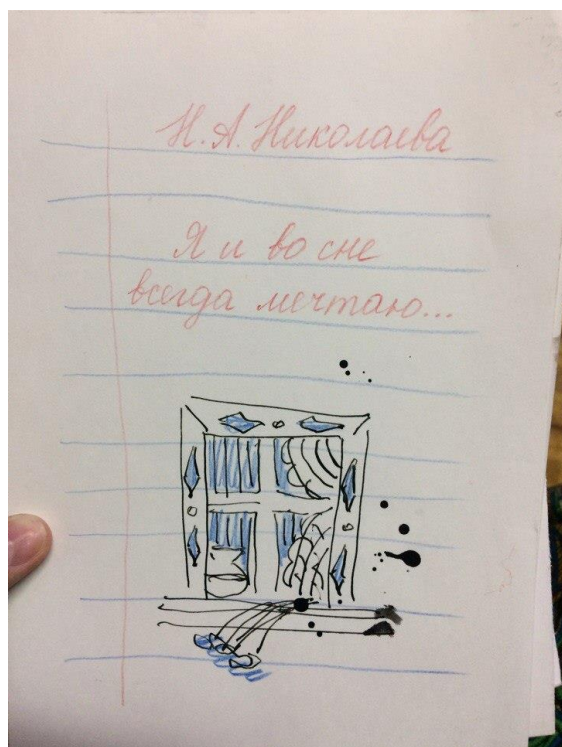 Н. А. Николаева
Я и во сне
всегда мечтаю...